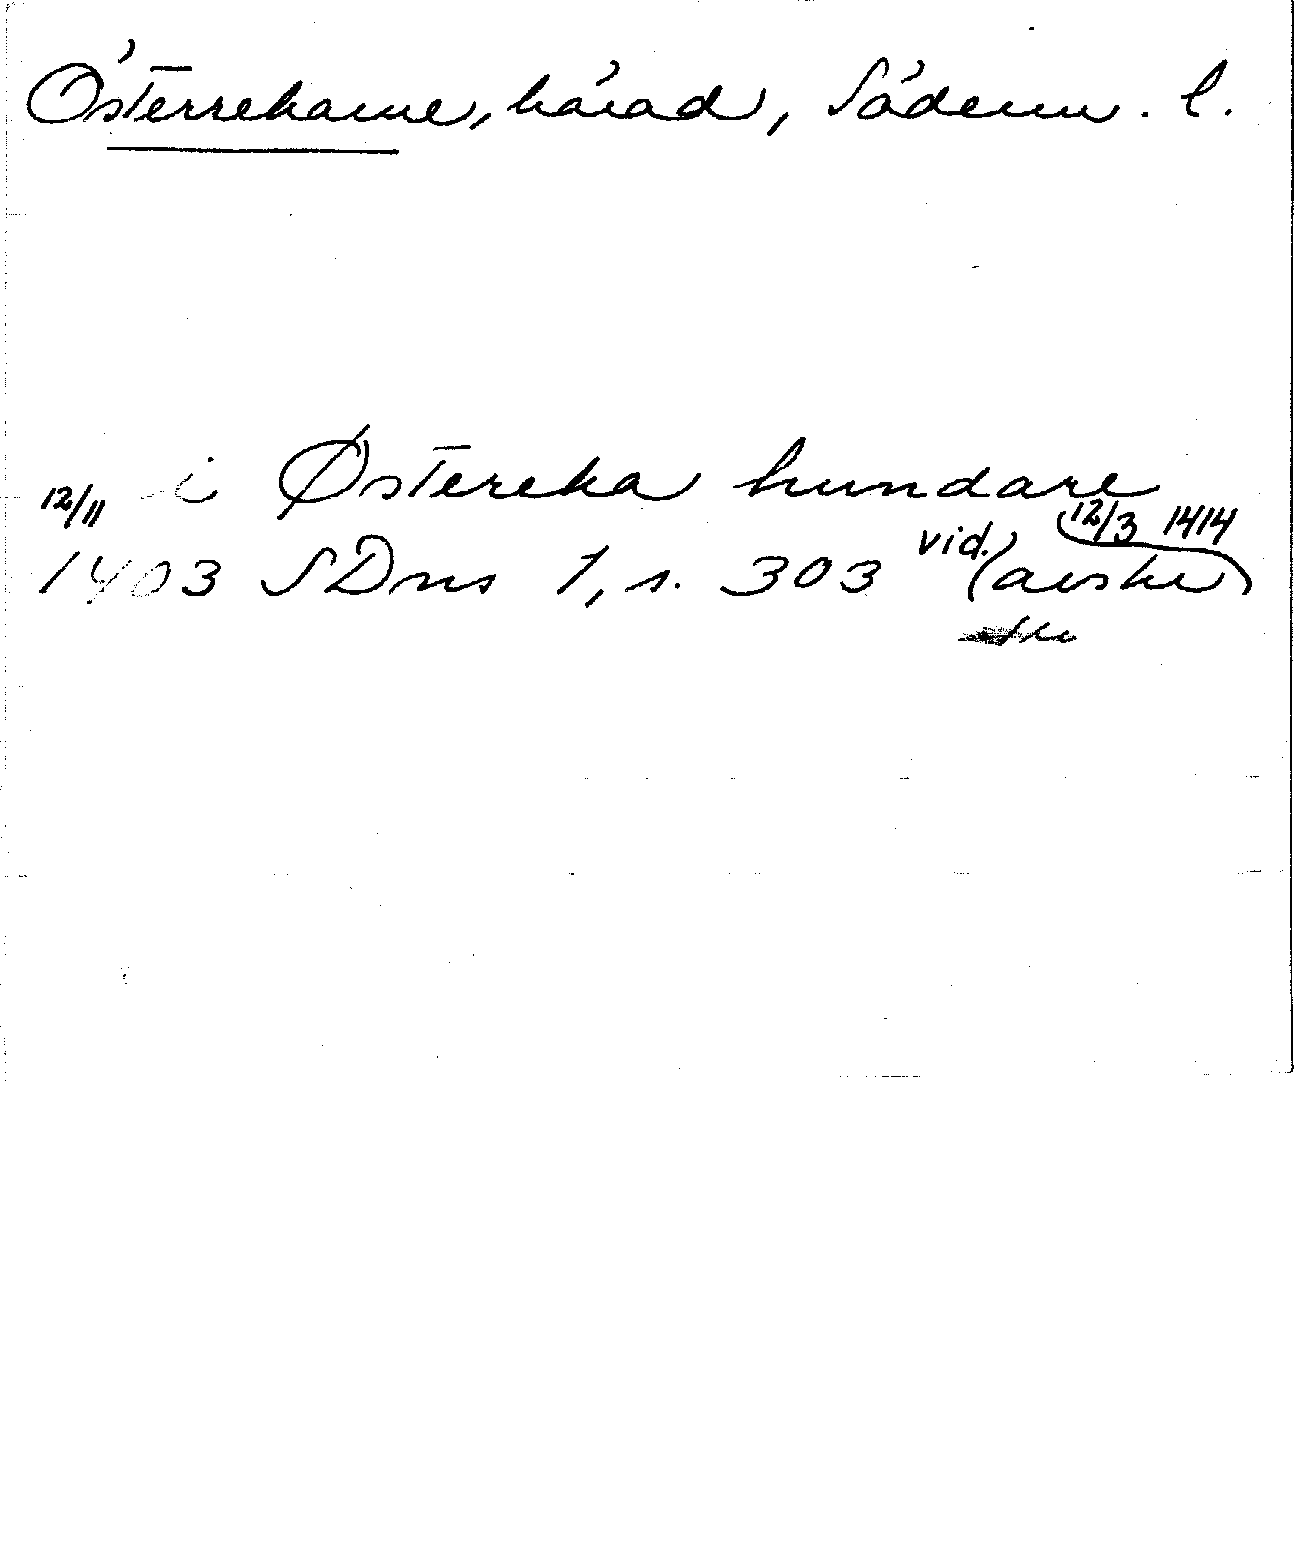 Österrekarne, härad, Söderm. l.
i Østereka hundare
12/11 1403 SDns 1, s. 303 vid. (avskr) 12/3 1414